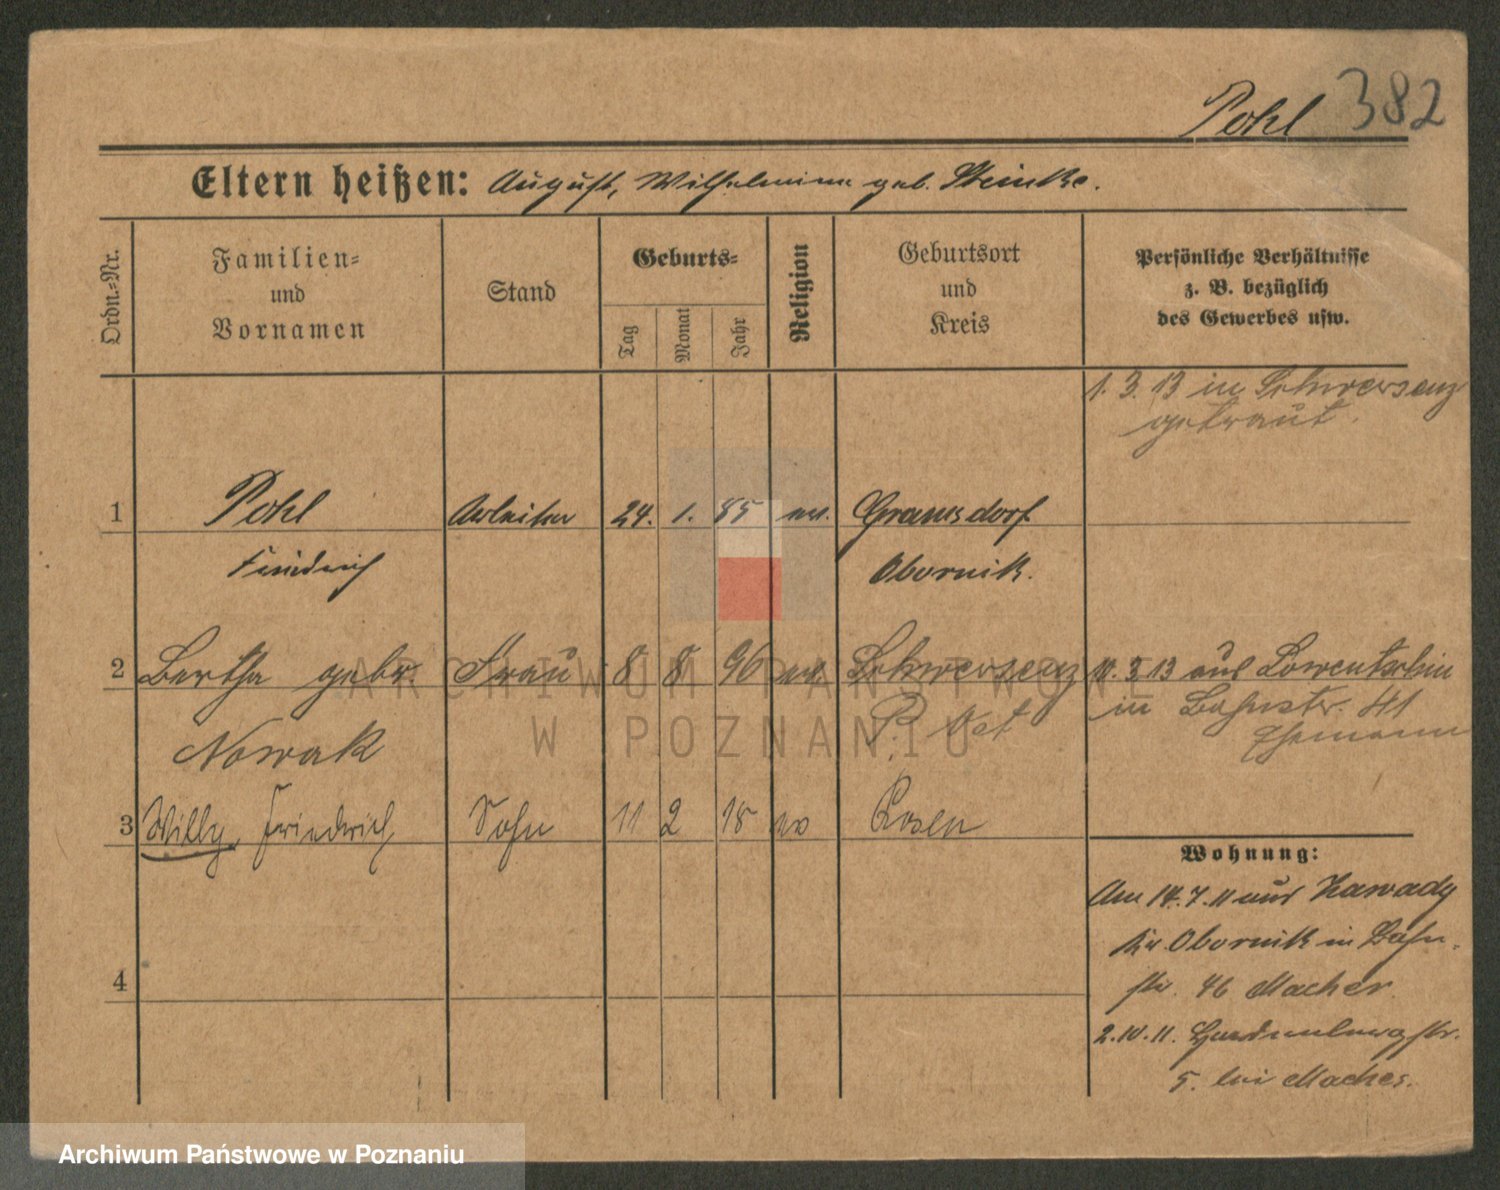 Pohl 382
Eltern heißen: August, Wilhelmine geb. Steinke.
Ordn.-Nr.
Familien-
und
Vornamen
Stand
Geburts-
Tag
Monat
Jahr
Religion
Geburtsort
und
Kreis
Persönliche Verhältnisse
z. B. bezüglich
des Gewerbes usw.
1. 3. 13 in Schwersenz
getraut.
1 Pohl Arbeiter 24. 1. 85 ev. Gramsdorf
Friedrich Obornik.
2 Bertha geb. Frau 8 8 96 ev. Schwersenz 10. 3 13 aus Lowentschin
Nowak P. Ost in Bahnstr. 41
Ehemann
3 Willy, Friedrich Sohn 11 2 18 ev Posen
Wohnung:
Am 14. 7. 11 aus Zawady
Kr. Obornik in Bahn-
str. 46 Macher.
4
2. 10. 11. Hardenbergstr.
5. bei Macher.
ARCHIWUM PAŃSTWOWE
W POZNANIU
Archiwum Państwowe w Poznaniu